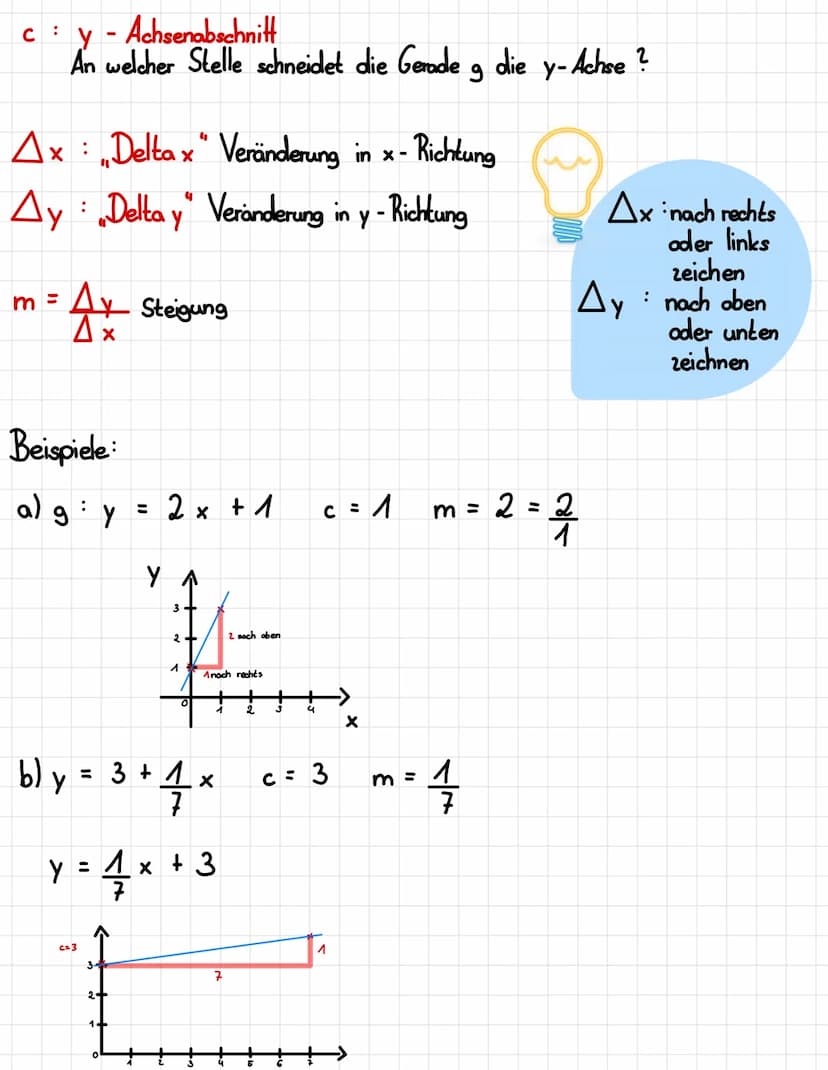 c : y - Achsenabschnitt
An welcher Stelle schneidet die Gerade g die y-Achse ?
Δx : „Delta x“ Veränderung in x - Richtung
Δy : „Delta y“ Veränderung in y - Richtung
m = Δy/Δx Steigung
Δx : nach rechts
oder links
zeichen
Δy : nach oben
oder unten
zeichnen
Beispiele:
a) g : y = 2x + 1 c = 1 m = 2 = 2/1
y
3
2
2 nach oben
1
1 nach rechts
0 1 2 3 4
x
b) y = 3 + 1/7 x c = 3 m = 1/7
y = 1/7 x + 3
c=3
1
3
7
2
1
0 1 2 3 4 5 6 7